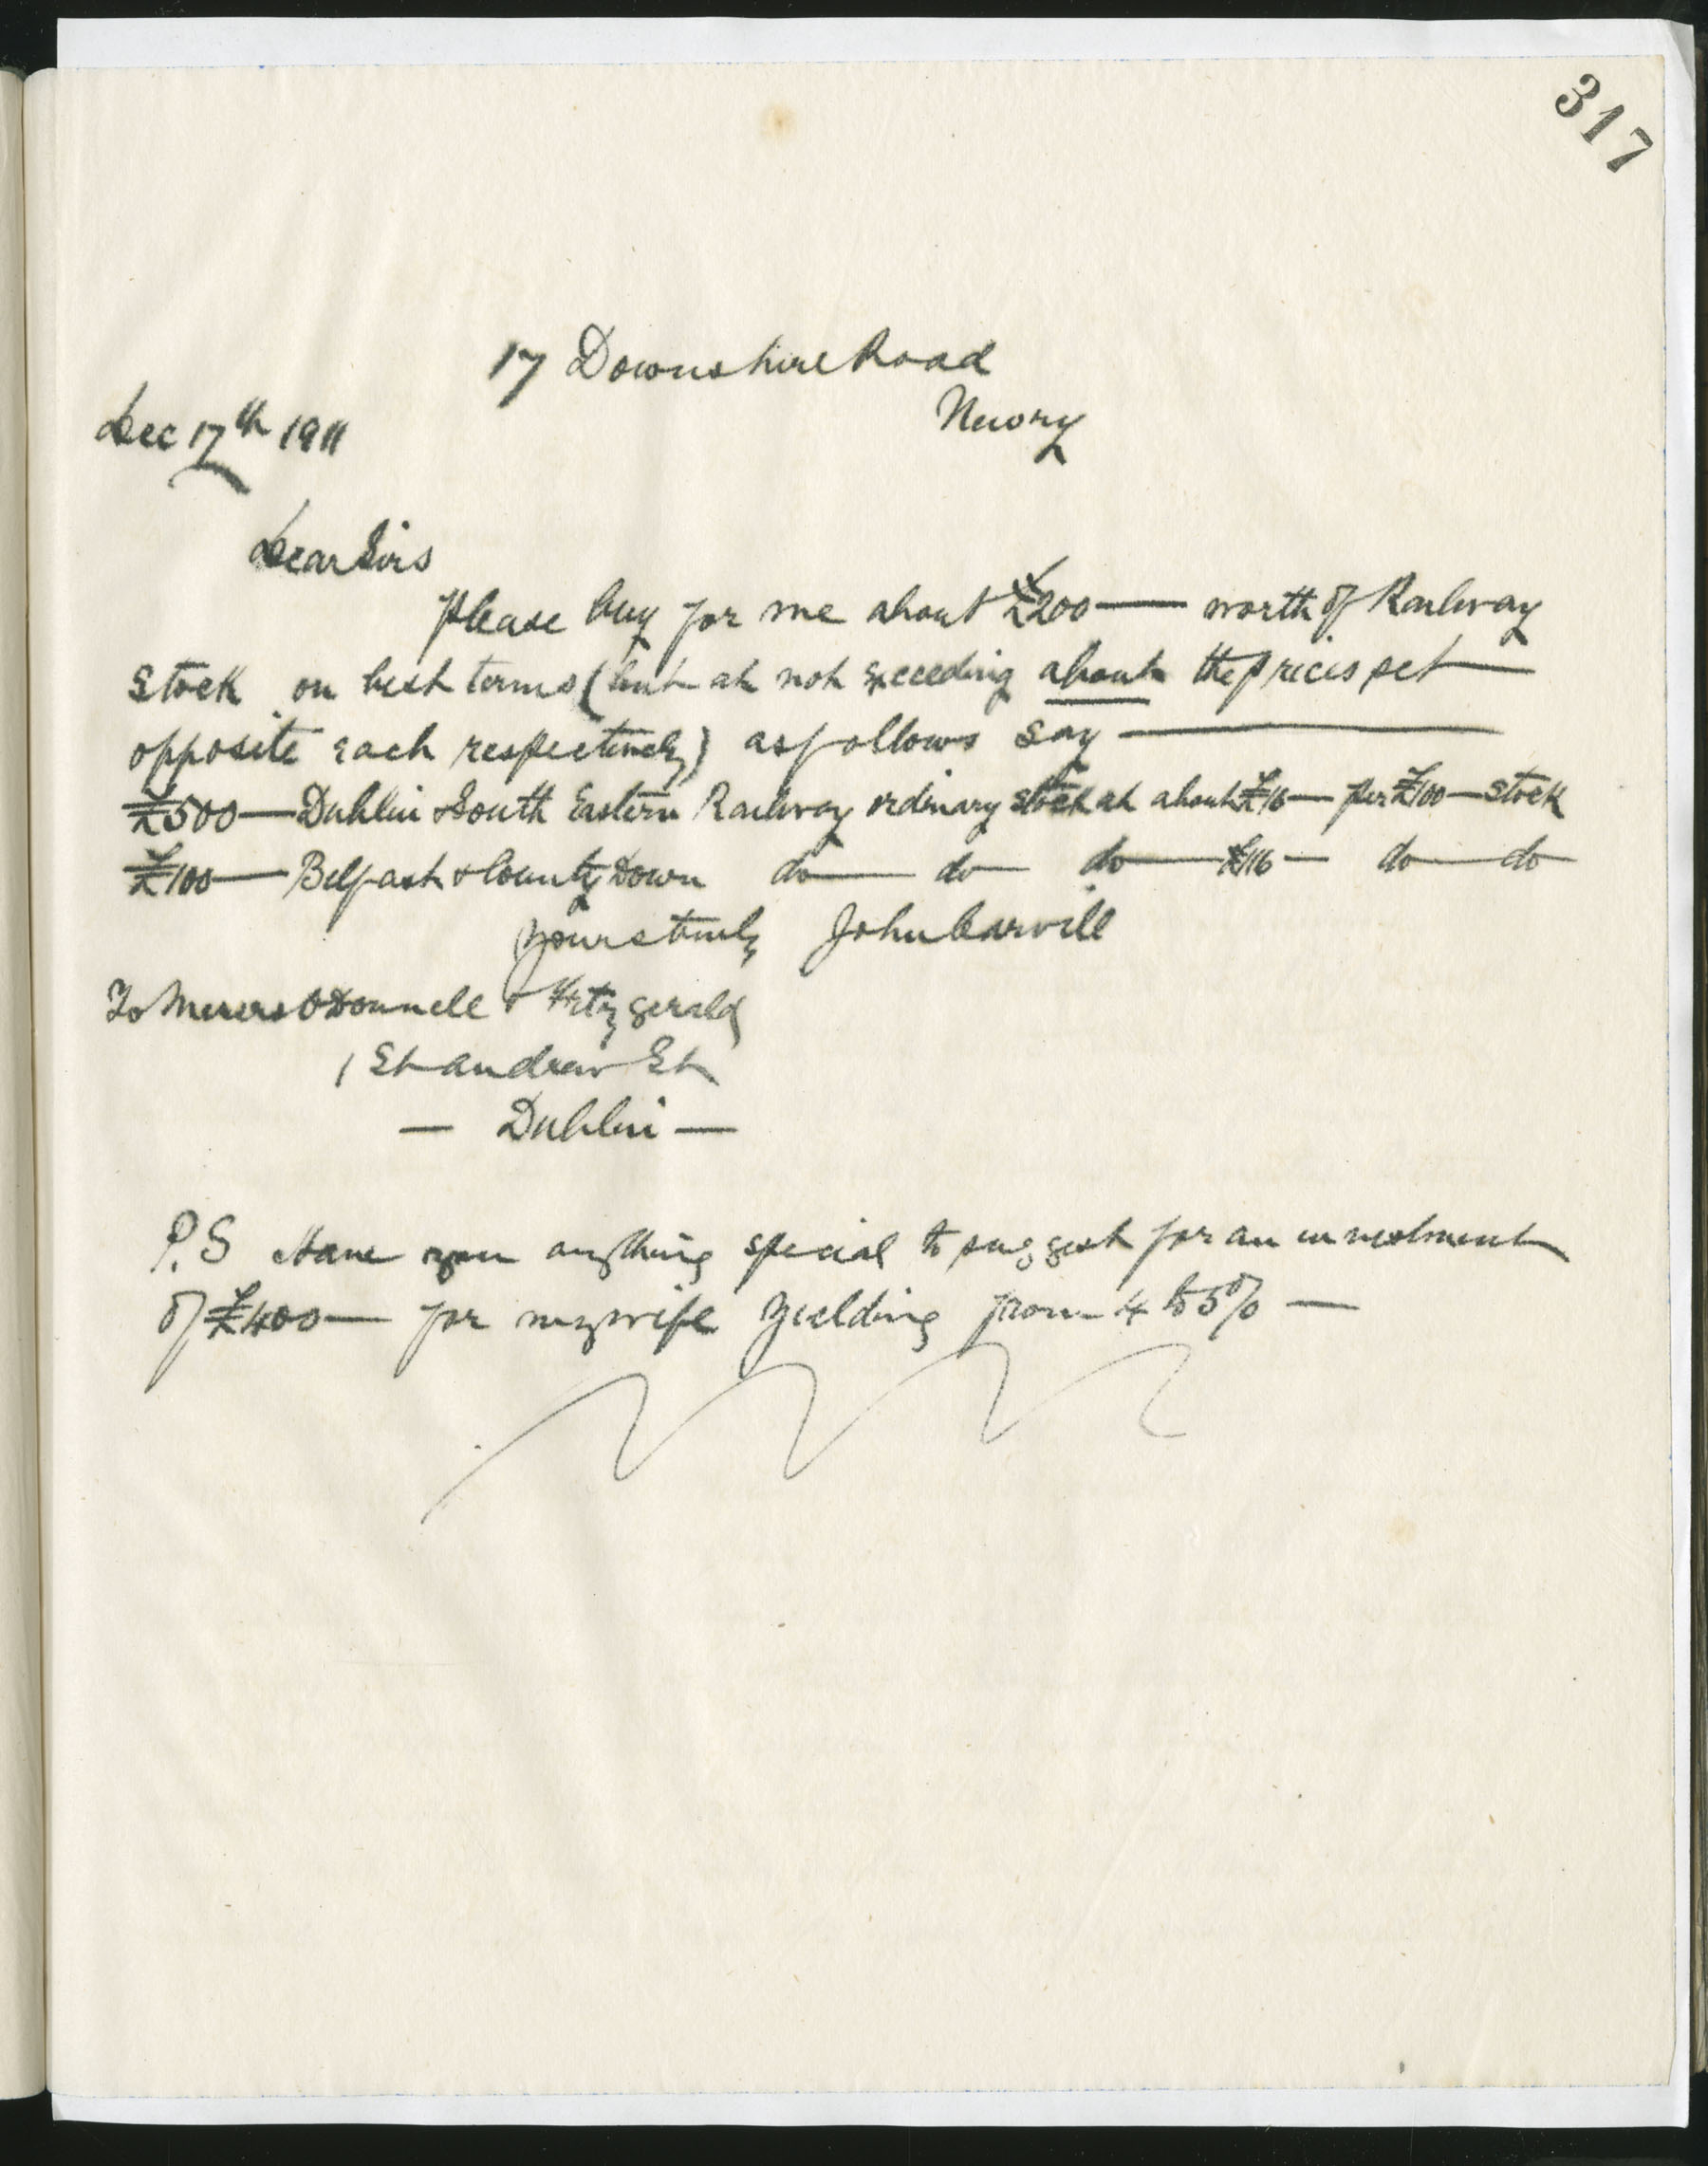 317
17 Downshire Road
Newry
Dec 17th 1911
Dear Sirs
Please buy for me about £200 — worth of Railway
Stock on best terms (but at not exceeding about the prices set —
opposite each respectively) as follows say —
£500 — Dublin & South Eastern Railway ordinary stock at about £16 — per £100 — Stock
£100 — Belfast & County Down do — do — do — £116 — do — do
Yours truly John Carvill
To Messrs O'Donnell & Fitzgerald
1 St Andrew St
— Dublin —
P.S Have you anything special to suggest for an investment
of £400 — for my wife yielding from 4 to 5% —